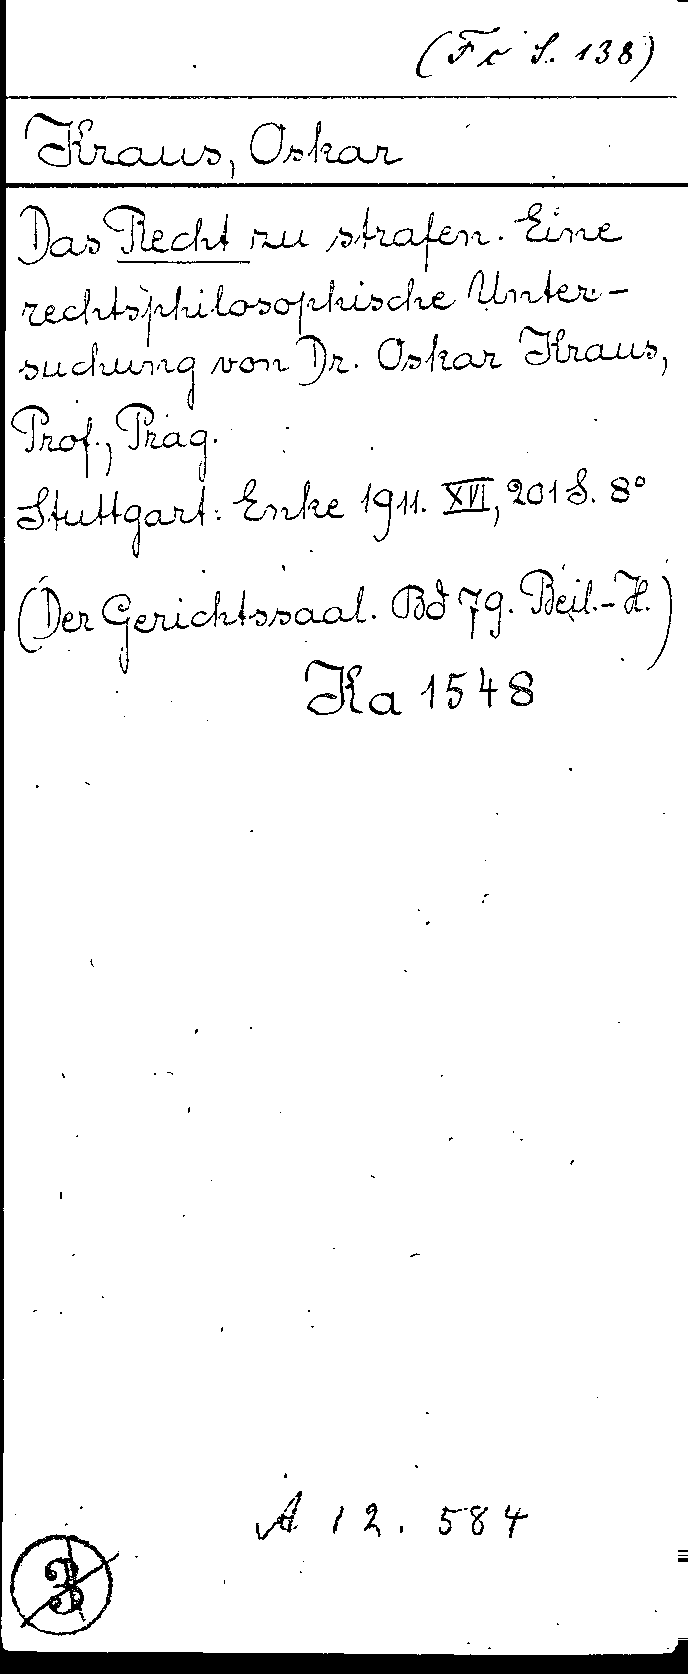 (Fc S. 138)
Kraus, Oskar
Das Recht zu strafen. Eine
rechtsphilosophische Unter-
suchung von Dr. Oskar Kraus,
Prof., Prag.
Stuttgart: Enke 1911. XVI, 201 S. 8°
(Der Gerichtssaal. Bd 79. Beil.-H.)
Ka 1548
A 12. 584
3